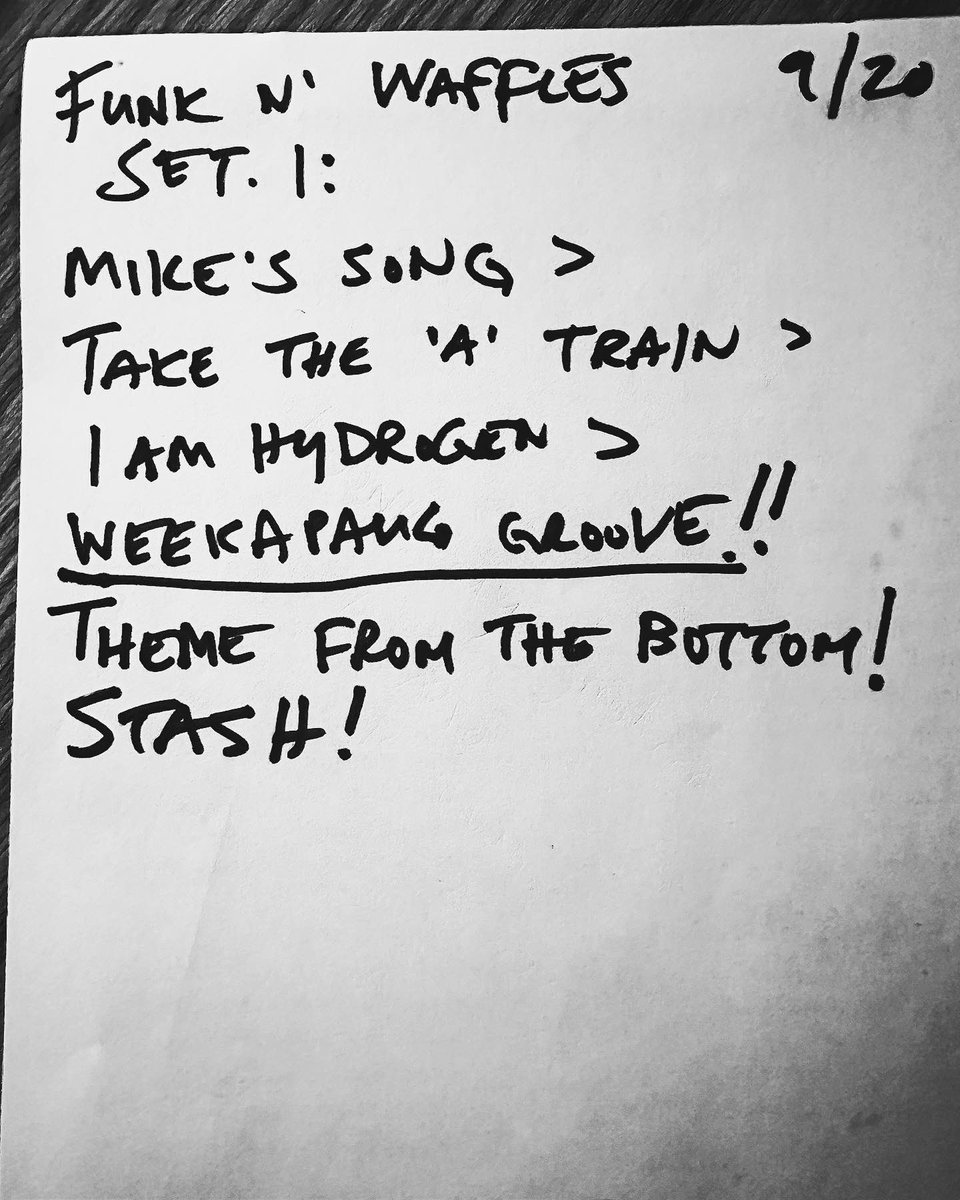 FUNK N' WAFFLES 9/20
SET. 1:
MIKE'S SONG >
TAKE THE 'A' TRAIN >
I AM HYDROGEN >
WEEKAPAUG GROOVE!!
THEME FROM THE BOTTOM!
STASH!